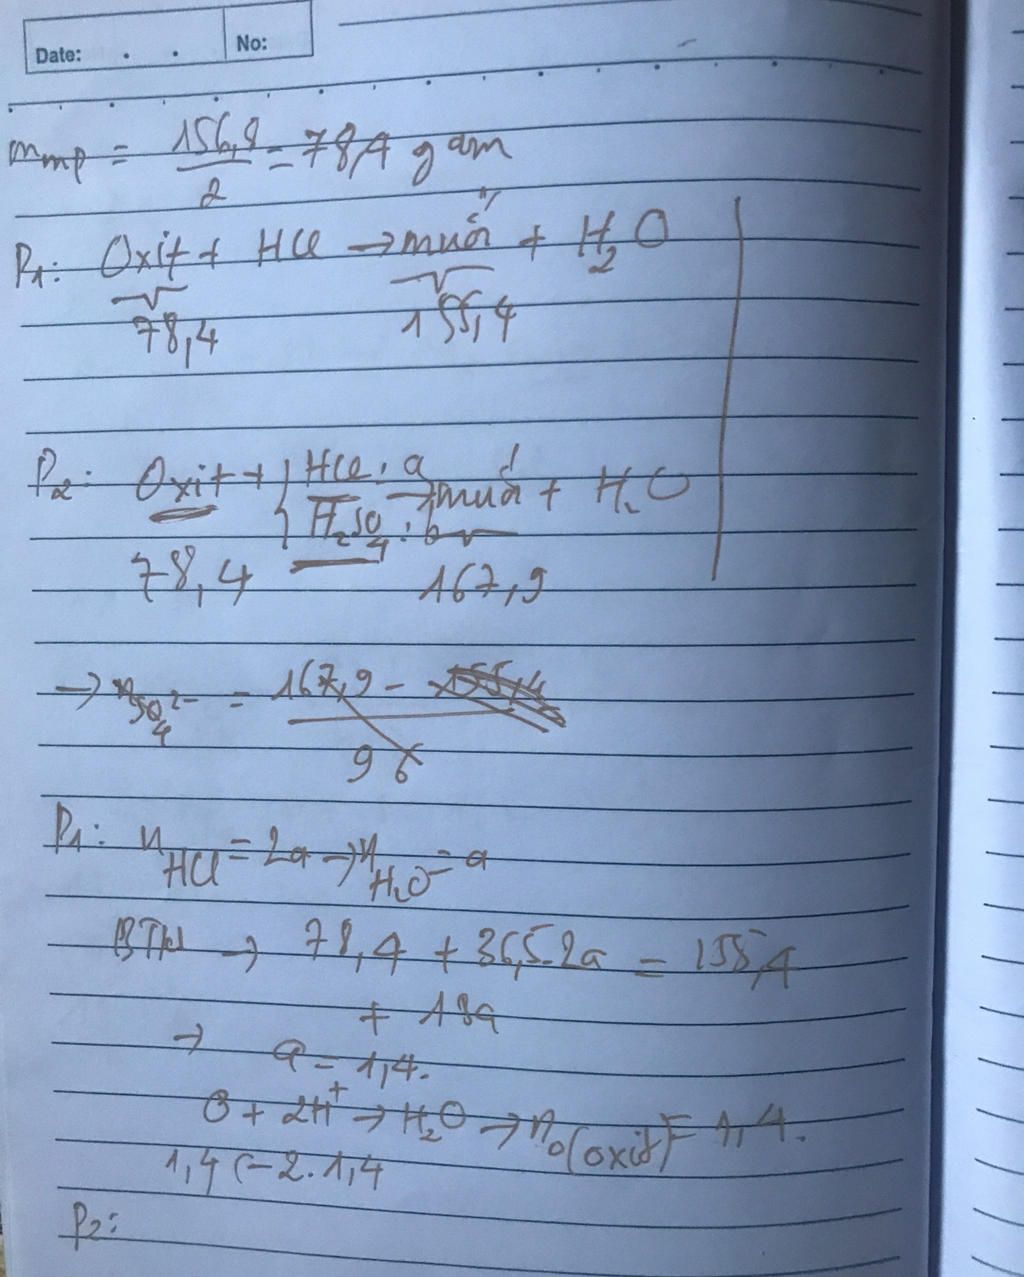 Date: . . No:
m mp = 156,8 / 2 = 78,4 gam
P1: Oxit + HCl → muối + H2O
78,4 155,4
P2: Oxit + { HCl: a H2SO4: b → muối + H2O
78,4 167,9
→ nSO4 2- = 167,9 - 155,4 / 96
P1: nHCl = 2a → nH2O = a
BTKL → 78,4 + 36,5.2a = 155,4
+ 18a
→ a = 1,4.
O + 2H+ → H2O → nO(oxit) = 1,4.
1,4 ← 2.1,4
P2: